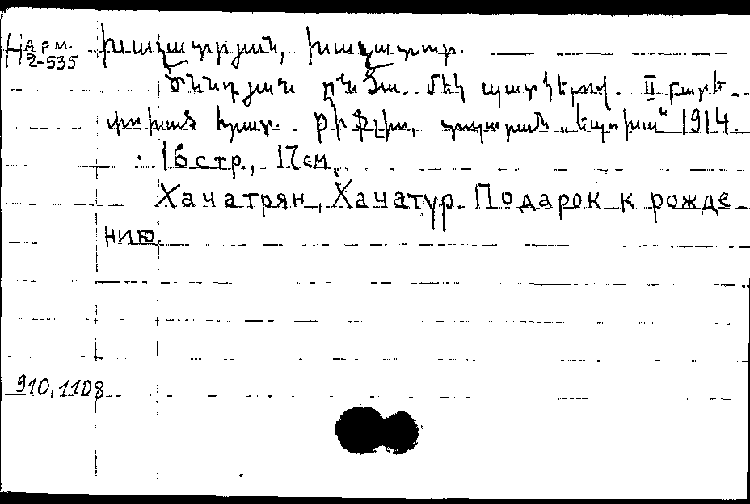 Н арм. Խաչատրյան, Խաչատուր.
2-535
Ծննդյան ընծա. Մեկ պատկերով. II բարե-
փոխած հրատ. Թիֆլիս, տպարան „Էպոխա“ 1914.
16 стр., 17 см.
Хачатрян, Хачатур. Подарок к рожде-
нию.
910,1108